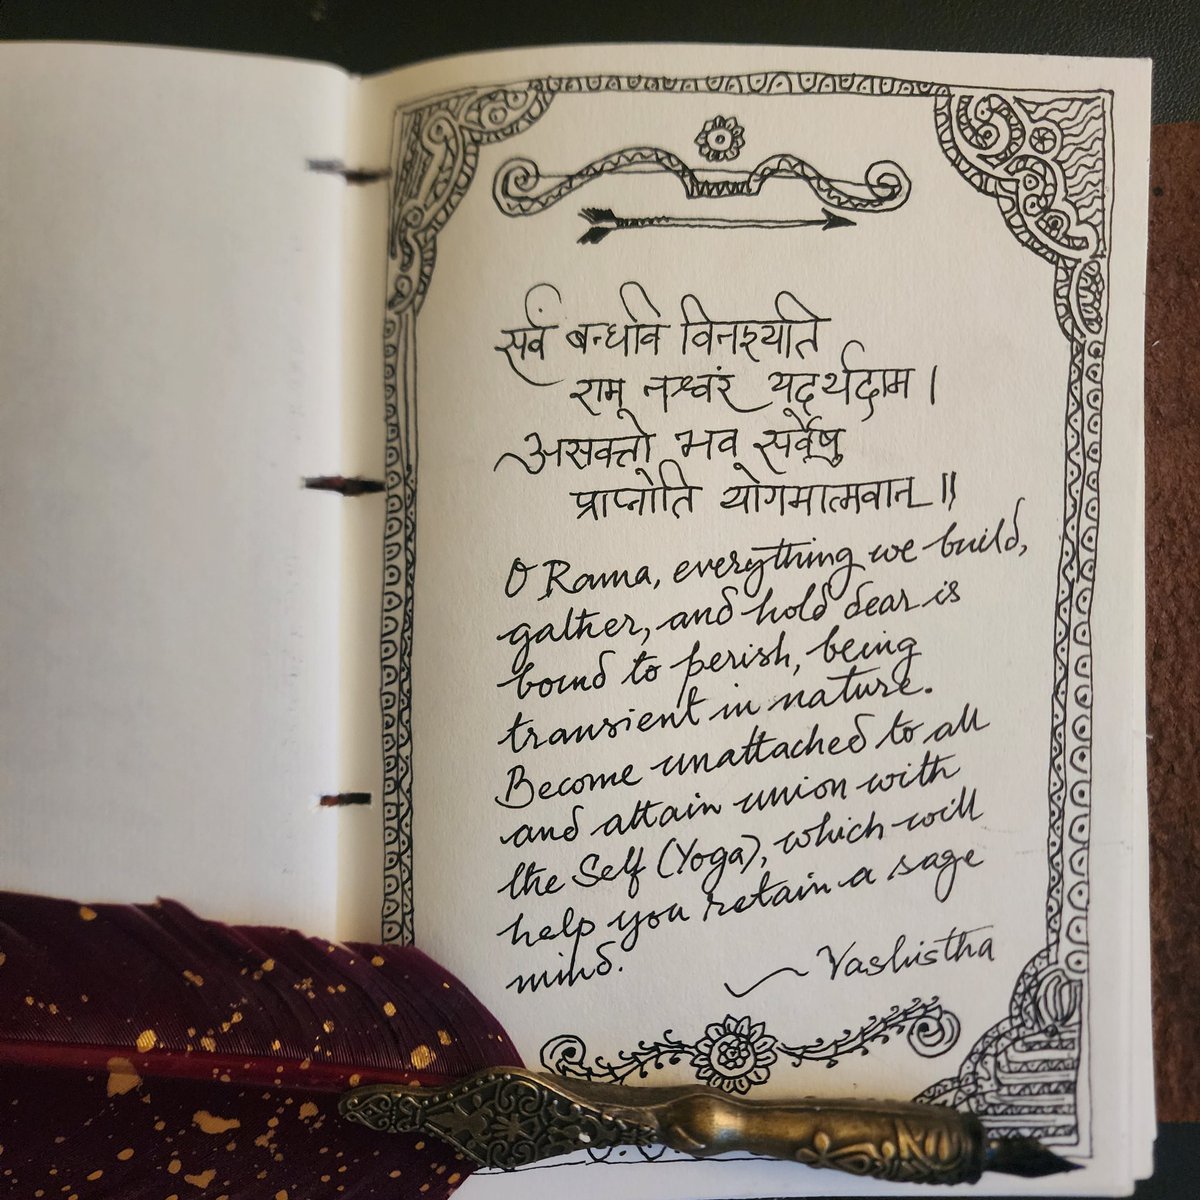 सर्वं बन्धवि विनश्यति
राम नश्वरं यदर्थदाम ।
असक्तो भव सर्वेषु
प्राप्नोति योगमात्मवान् ॥
O Rama, everything we build,
gather, and hold dear is
bound to perish, being
transient in nature.
Become unattached to all
and attain union with
the Self (Yoga), which will
help you retain a sage
mind.
~ Vashistha